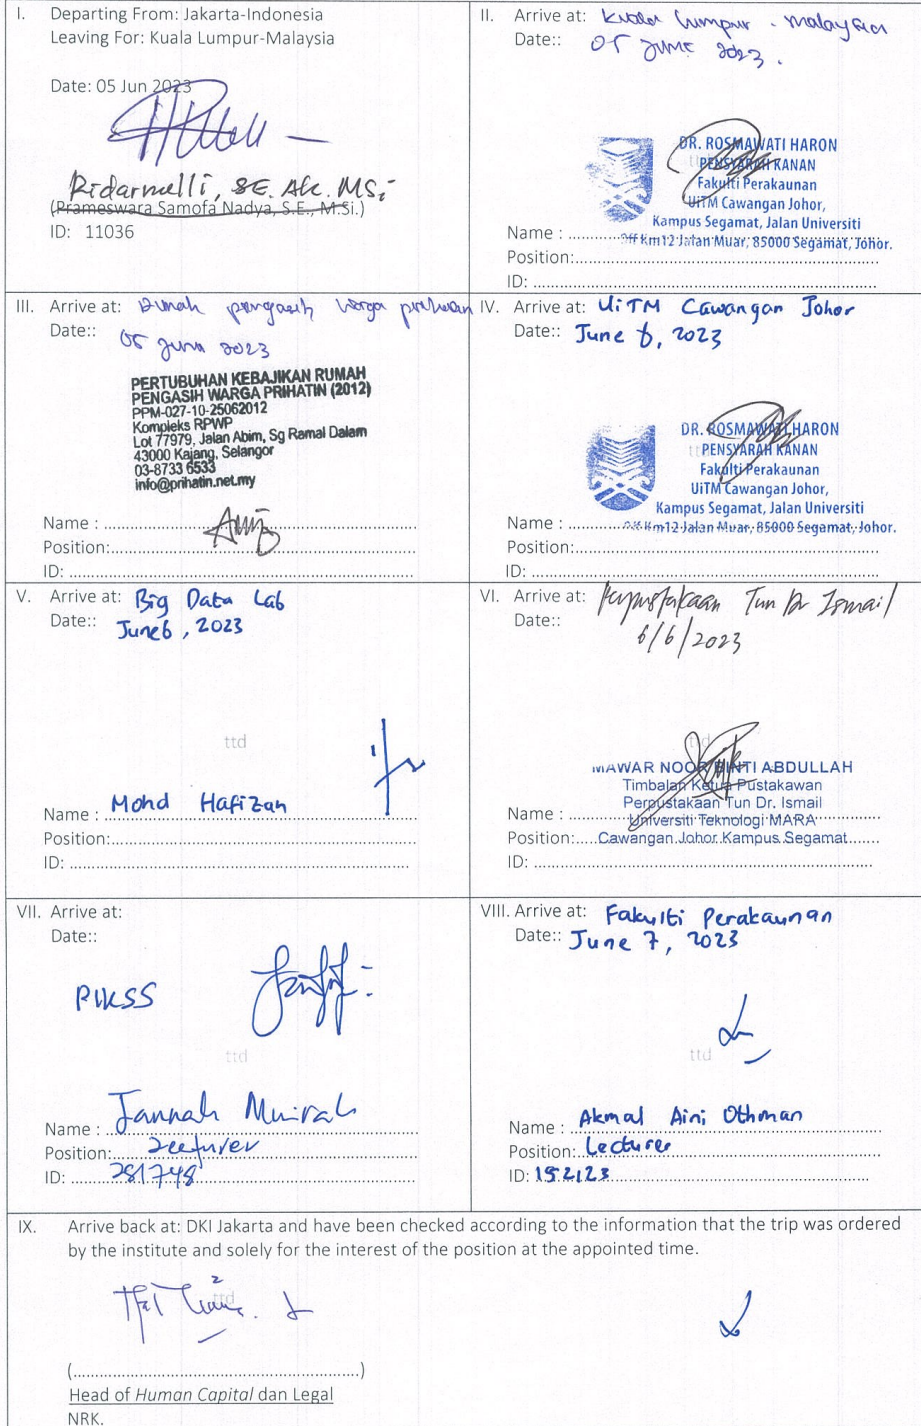 I. Departing From: Jakarta-Indonesia
Leaving For: Kuala Lumpur-Malaysia
Date: 05 Jun 2023
Ridarmelli, SE. Ak. MSi
(Prameswara Samofa Nadya, S.E., M.Si.)
ID: 11036
II. Arrive at: Kuala Lumpur - malaysia
Date:: 05 June 2023.
DR. ROSMAWATI HARON
PENSYARAH KANAN
Fakulti Perakaunan
UiTM Cawangan Johor,
Kampus Segamat, Jalan Universiti
Off Km12 Jalan Muar, 85000 Segamat, Johor.
Name :
Position:
ID:
III. Arrive at: Rumah pengasih warga prihatin
Date:: 05 June 2023
PERTUBUHAN KEBAJIKAN RUMAH
PENGASIH WARGA PRIHATIN (2012)
PPM-027-10-25062012
Kompleks RPWP
Lot 77979, Jalan Abim, Sg Ramal Dalam
43000 Kajang, Selangor
03-8733 6533
info@prihatin.net.my
Name :
Position:
ID:
IV. Arrive at: UiTM Cawangan Johor
Date:: June 6, 2023
DR. ROSMAWATI HARON
PENSYARAH KANAN
Fakulti Perakaunan
UiTM Cawangan Johor,
Kampus Segamat, Jalan Universiti
Off Km12 Jalan Muar, 85000 Segamat, Johor.
Name :
Position:
ID:
V. Arrive at: Big Data Lab
Date:: June 6, 2023
ttd
Name : Mohd Hafizan
Position:
ID:
VI. Arrive at: Perpustakaan Tun Dr Ismail
Date:: 6/6/2023
ttd
MAWAR NOOR BINTI ABDULLAH
Timbalan Ketua Pustakawan
Perpustakaan Tun Dr. Ismail
Universiti Teknologi MARA
Cawangan Johor Kampus Segamat
Name :
Position:
ID:
VII. Arrive at:
Date::
PIKSS
ttd
Name : Jannah Munirah
Position: Lecturer
ID: 281748
VIII. Arrive at: Fakulti Perakaunan
Date:: June 7, 2023
ttd
Name : Akmal Aini Othman
Position: Lecturer
ID: 152123
IX. Arrive back at: DKI Jakarta and have been checked according to the information that the trip was ordered
by the institute and solely for the interest of the position at the appointed time.
ttd
(....................................................)
Head of Human Capital dan Legal
NRK.